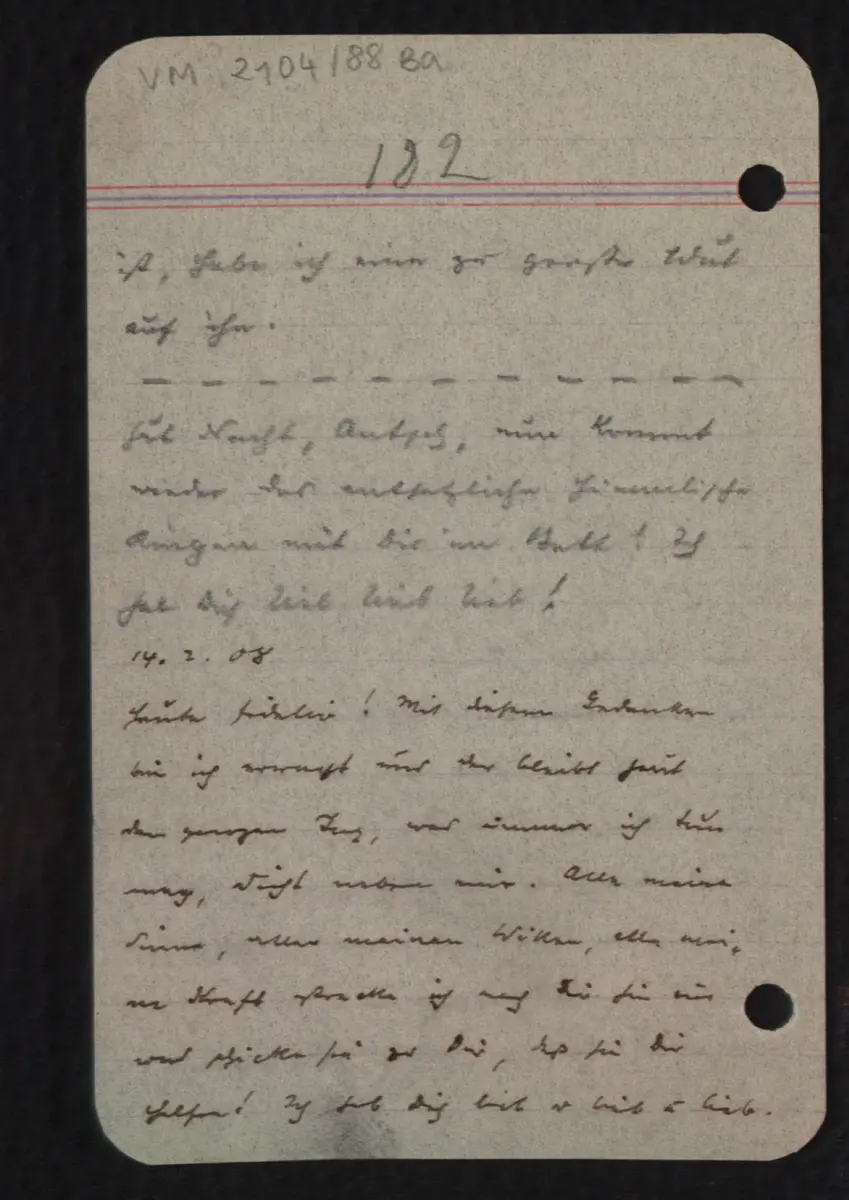 VM 2104/88 Ba
182
ist, habe ich eine zu große Wut
auf ihn.
Gut Nacht, Antsch, nun kommt
wieder das entsetzliche himmlische
Ringen mit Dir im Bett! Ich
hab Dich lieb lieb lieb!
14. 2. 08
Heute Fidelio! Mit diesem Gedanken
bin ich erwacht und der bleibt heut
den ganzen Tag, was immer ich tun
mag, dicht neben mir. Alle meine
Sinne, allen meinen Willen, alle mei-
ne Kraft strecke ich nach Dir hin aus
und schicke sie zu Dir, daß sie Dir
helfen! Ich hab Dich lieb u lieb u lieb.